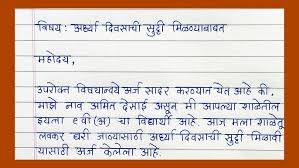 विषय: अर्ध्या दिवसाची सुट्टी मिळण्याबाबत
महोदय,
उपरोक्त विषयान्वये अर्ज सादर करण्यात येत आहे की,
माझे नाव अमित देसाई असून मी आपल्या शाळेतील
इयत्ता ९ वी (अ) चा विद्यार्थी आहे. आज मला शाळेतून
लवकर घरी जाण्यासाठी अर्ध्या दिवसाची सुट्टी मिळावी
यासाठी अर्ज केलेला आहे.